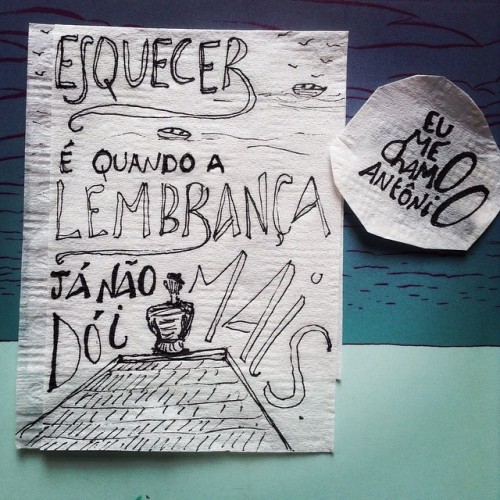 ESQUECER
É QUANDO A
LEMBRANÇA
JÁ NÃO
DÓI MAIS
EU
ME
CHAMO
ANTÔNIO